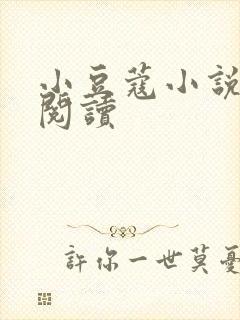 小豆蔻小說
閱讀
許你一世莫憂